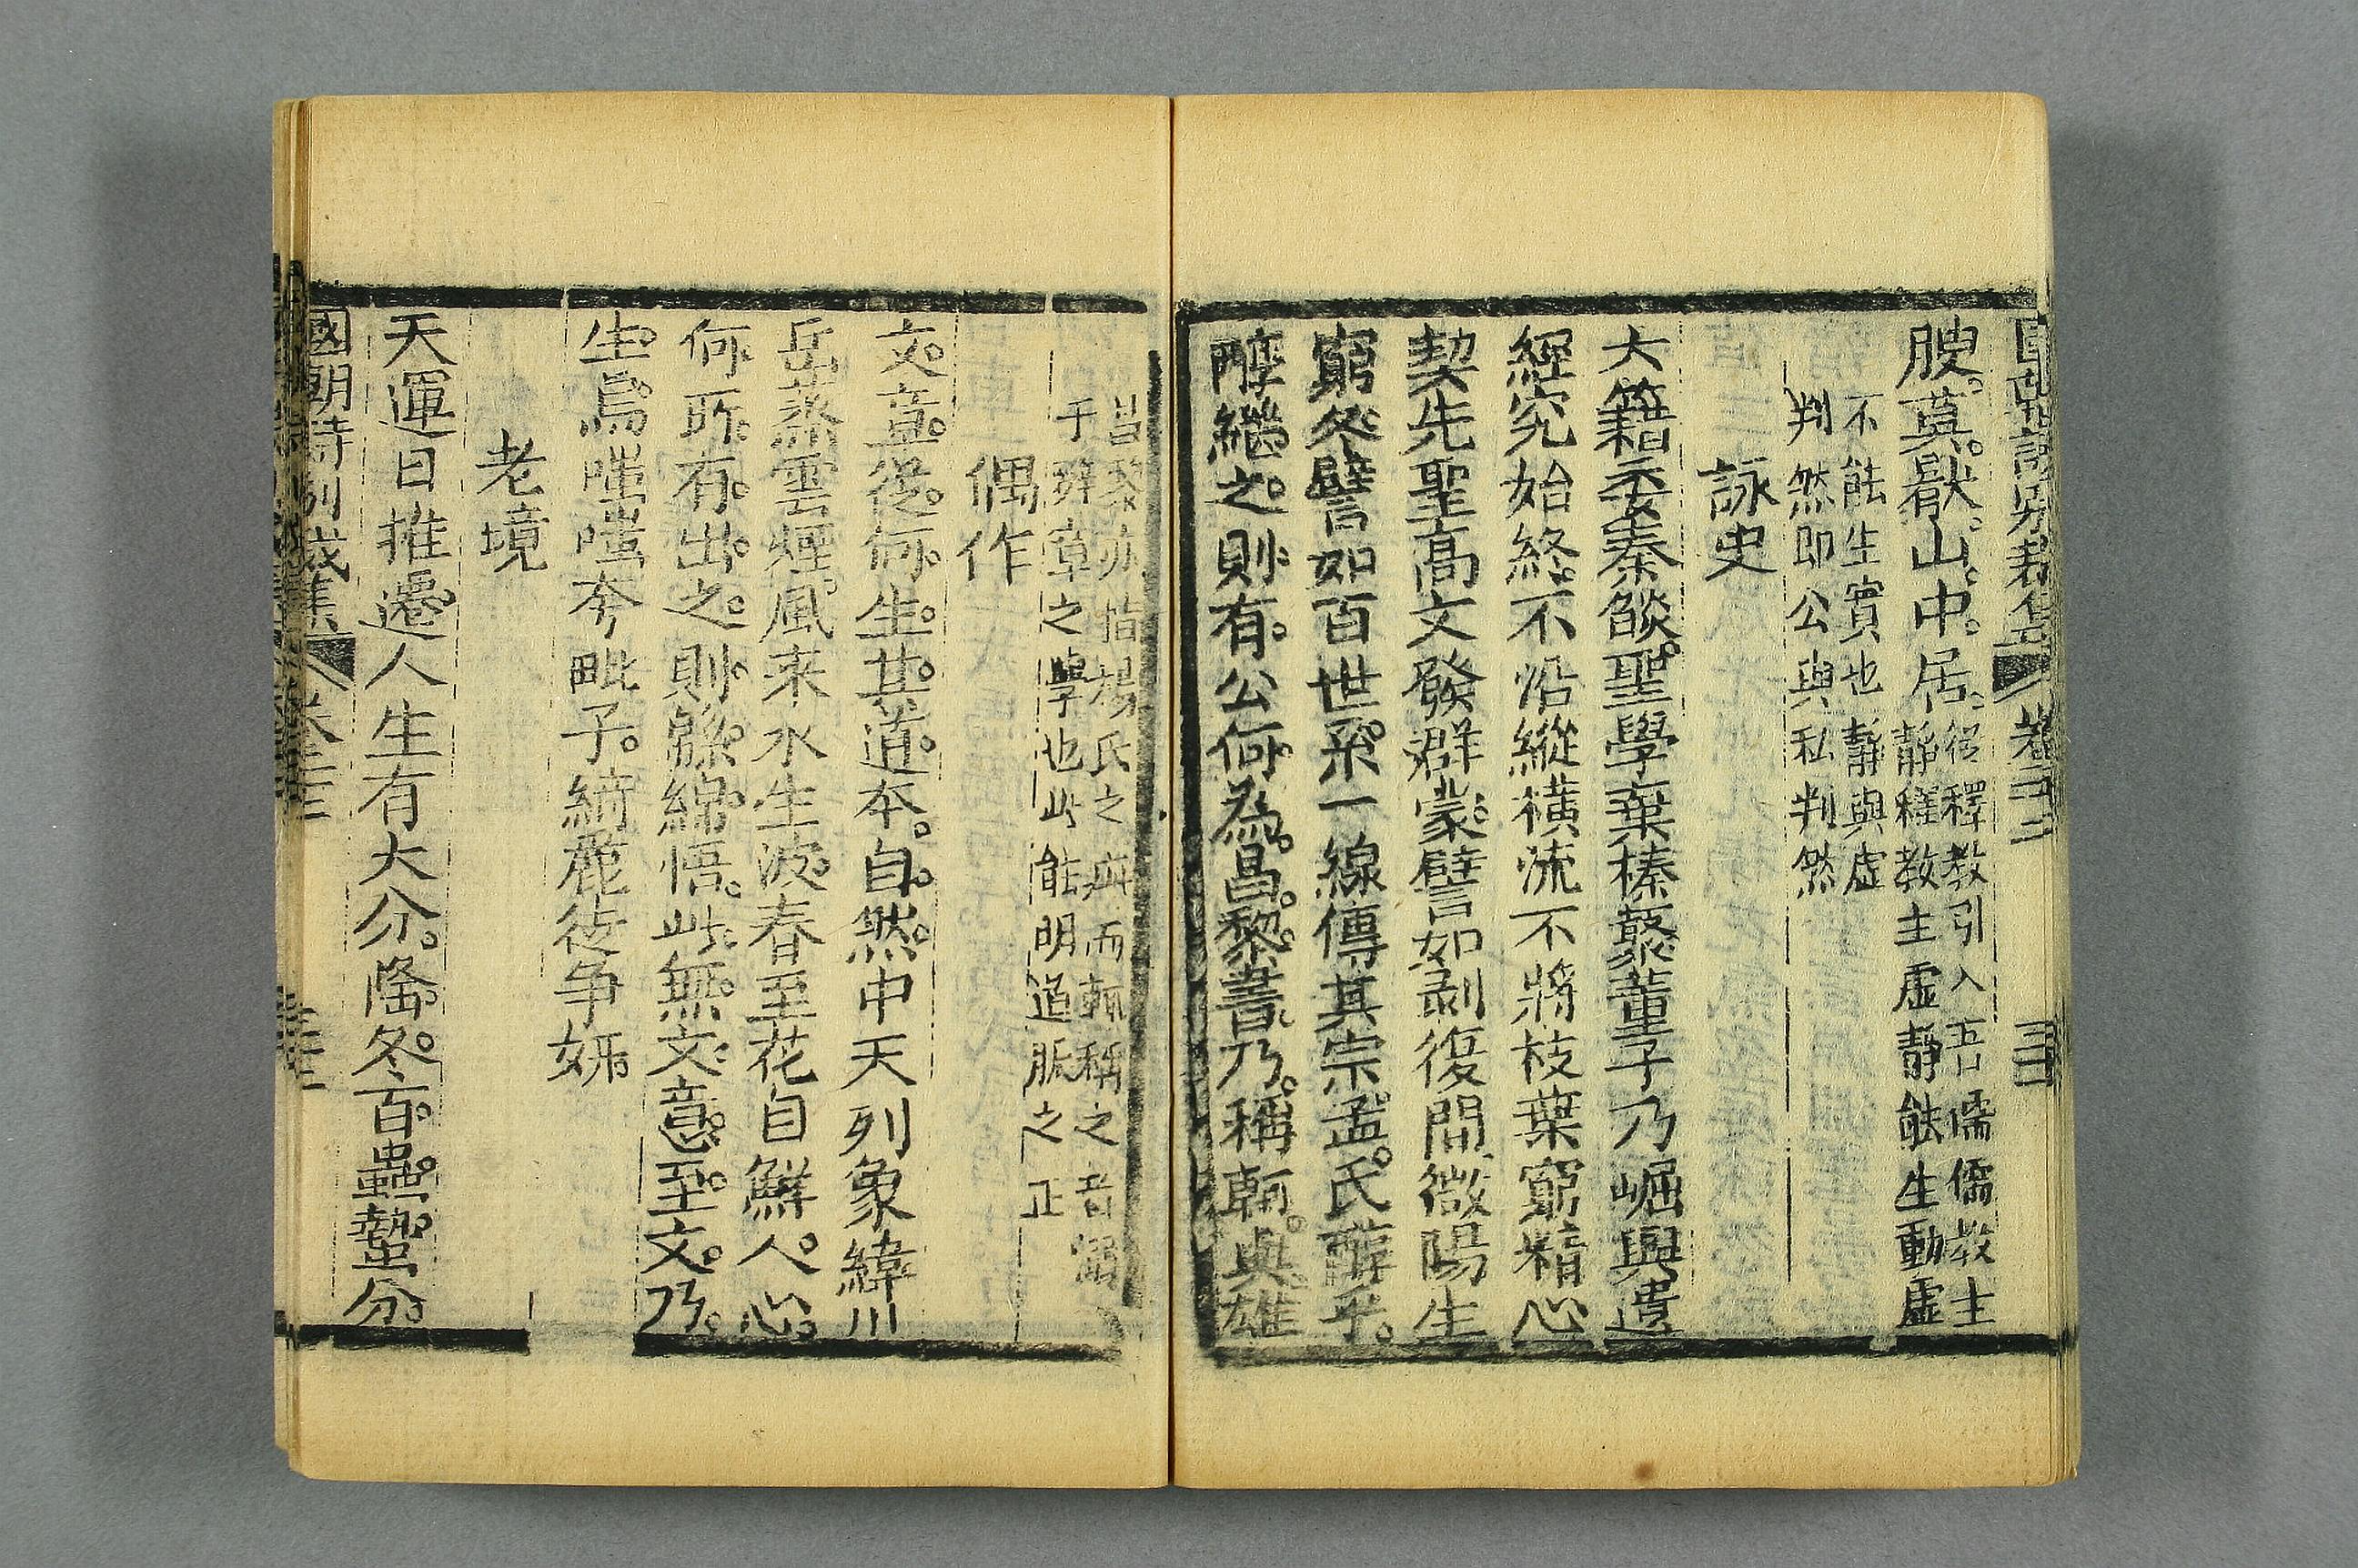 國朝詩別裁集 卷二十二 三十二
腴莫厭山中居 從釋教引入吾儒儒教主
靜釋教主虛靜能生動虛
不能生實也靜與虛
判然即公與私判然
詠史
大籍委秦燄聖學棄榛藂董子乃崛興遺
經究始終不沿縱橫流不將枝葉窮精心
契先聖高文發群蒙譬如剥復間微陽生
窮冬譬如百世系一線傳其宗孟氏醇乎
醇繼之則有公何為昌黎書乃稱軻與雄
昌黎亦指揚氏之疵而軻稱之者
于辭章之學也此能明道脈之正
偶作
文章從何生其道本自然中天列象緯川
岳蒸雲煙風来水生波春至花自鮮人心
何所有出之則緜綿悟此無文意至文乃
生焉嗤嗤夸毗子綺靡徒爭妍
老境
天運日推遷人生有大分隆冬百蟲蟄分
國朝詩別裁集 卷二十二